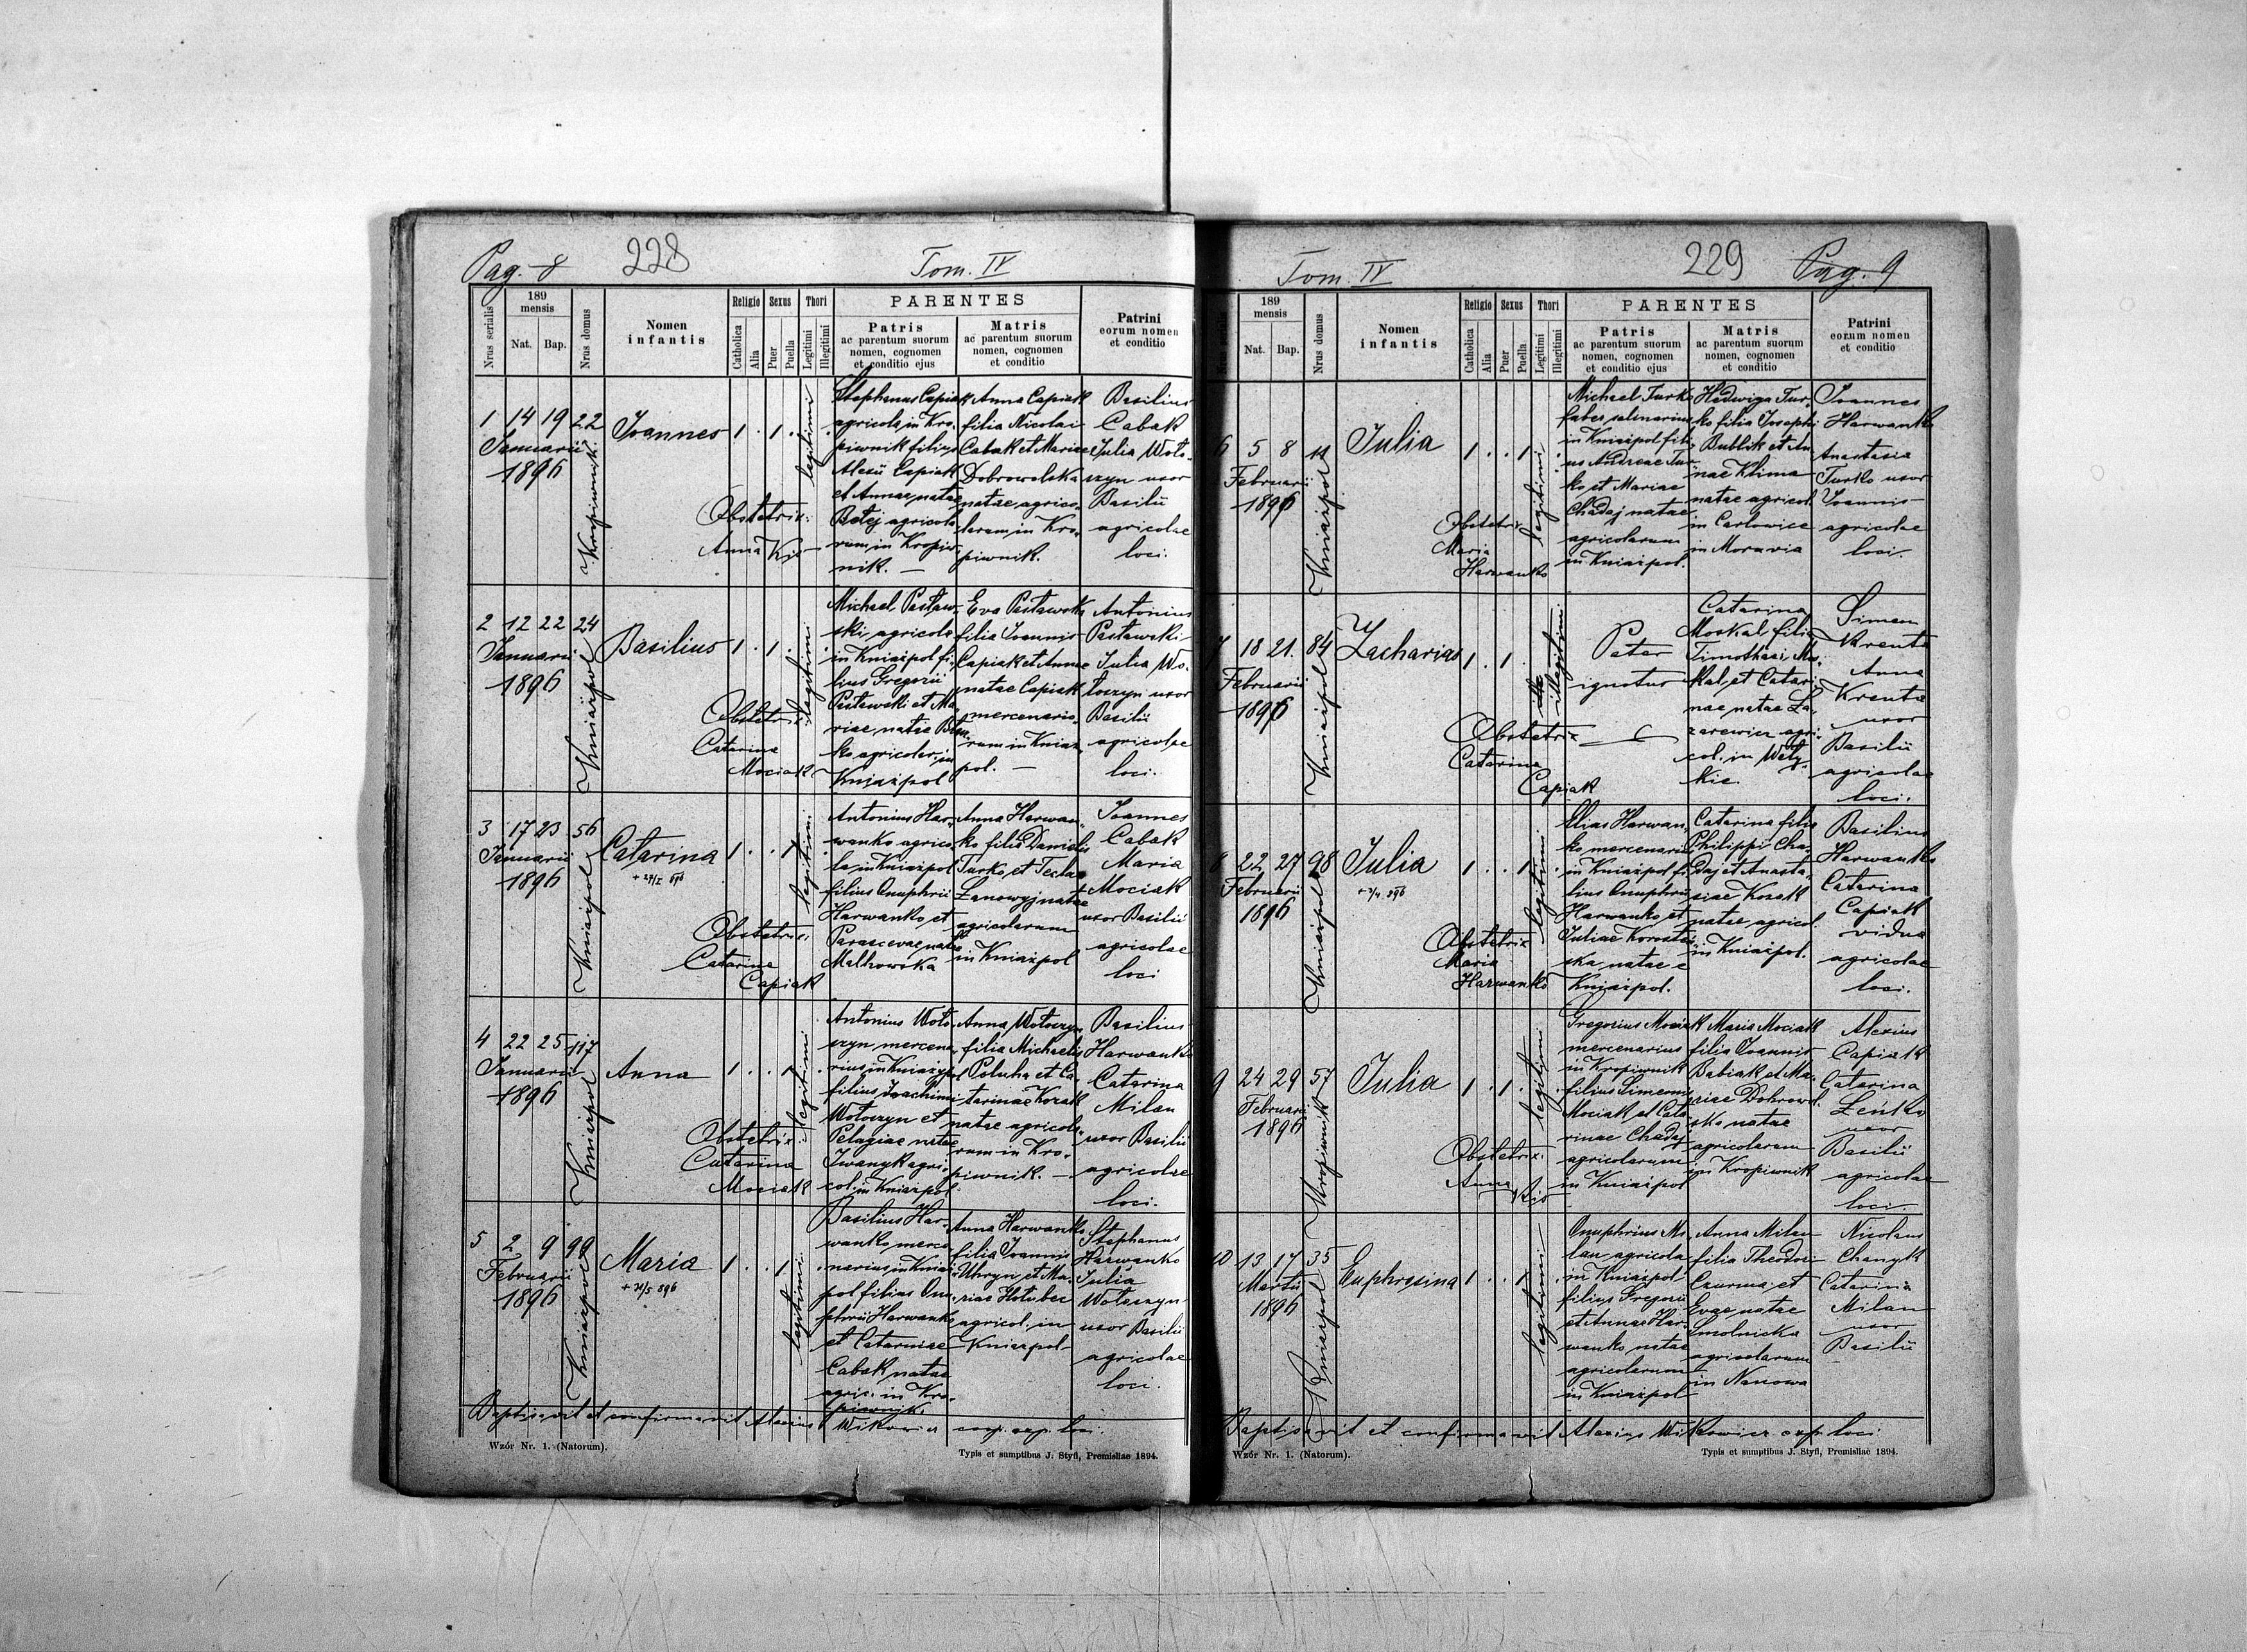 Pag. 8 228 Tom. IV
Nrus serialis
189
mensis
Nat. Bap.
Nrus domus
Nomen
infantis
Religio Sexus Thori
Catholica
Alia
Puer
Puella
Legitimi
Illegitimi
PARENTES
Patris
ac parentum suorum
nomen, cognomen
et conditio ejus
Matris
ac parentum suorum
nomen, cognomen
et conditio
Patrini
eorum nomen
et conditio
1 14 19 22
Januarii
1896
Kropiwnik
Joannes
1 . 1 .
legitimi
Obstetrix:
Anna Kis
Stephanus Capiak
agricola in Kro-
piwnik filius
Alexii Capiak
et Annae natae
agricola-
rum in Kropiw-
nik. —
Anna Capiak
filia Nicolai
Cabak et Mariae
Dobrowolska
natae agrico-
larum in Kro-
piwnik.
Basilius
Cabak
Julia Woło-
szyn uxor
Basilii
agricolae
loci.
2 12 22 24
Januarii
1896
Kniażpol
Basilius
1 . 1 .
legitimi
Obstetrix
Catarina
Mociak
Michael Pasław-
ski agricola
in Kniażpol fi-
lius Gregorii
Pasławski et Ma-
riae natae
ko agricolar. in
Kniażpol
Eva Pasławska
filia Joannis
Capiak et Annae
natae Capiak
mercenario-
rum in Kniaż-
pol. —
Antonius
Pasławski
Julia Wo-
łoszyn uxor
Basilii
agricolae
loci.
3 17 23 56
Januarii
1896
Kniażpol
Catarina
1 . . 1
legitimi
Obstetrix:
Catarina
Capiak
Antonius Har-
wanko agrico-
la in Kniażpol
filius Onuphrii
Harwanko et
Parascevae natae
Malhowska
Anna Harwan-
ko filia Danielis
Turko et Teclae
Łanowyj natae
agricolarum
in Kniażpol
Joannes
Cabak
Maria
Mociak
uxor Basilii
agricolae
loci
4 22 25 117
Januarii
1896
Kniażpol
Anna
1 . . 1
legitimi
Obstetrix:
Catarina
Mociak
Antonius Woło-
szyn mercena-
rius in Kniażpol
filius Joachimi
Wołoszyn et
Pelagiae natae
Iwanyk agri-
col. in Kniażpol
Anna Wołoszyn
filia Michaelis
Poluha et Ca-
tarinae Kozak
natae agricola-
rum in Kro-
piwnik. —
Basilius
Harwanko
Catarina
Milan
uxor Basilii
agricolae
loci.
5 2 9 99
Februarii
1896
Kniażpol
Maria
+ 21/5 896
1 . . 1
legitimi
Basilius Har-
wanko merce-
narius in Kniaż-
pol filius Onu-
phrii Harwanko
et Catarinae
Cabak natae
agric. in Kro-
piwnik.
Anna Harwanko
filia Joannis
Uhryn et Ma-
riae Hołubec
agricol. in
Kniażpol
Stephanus
Harwanko
Julia
Wołoszyn
uxor Basilii
agricolae
loci.
Baptisavit et confirmavit Alexius Witkowicz coop. exp. loci.
Wzór Nr. 1. (Natorum).
Typis et sumptibus J. Styfi, Premisliae 1894.
Tom. IV 229 Pag. 9
189
mensis
Nat. Bap.
Nrus domus
Nomen
infantis
Religio Sexus Thori
Catholica
Alia
Puer
Puella
Legitimi
Illegitimi
PARENTES
Patris
ac parentum suorum
nomen, cognomen
et conditio ejus
Matris
ac parentum suorum
nomen, cognomen
et conditio
Patrini
eorum nomen
et conditio
6 5 8 11
Februarii
1896
Kniażpol
Julia
1 . . 1
legitimi
Obstetrix
Maria
Harwanko
Michael Turko
faber salinarius
in Kniażpol fili-
us Andreae Tur-
ko et Mariae
Chadaj natae
agricolarum
in Kniażpol.
Hedwiga Tur-
ko filia Josephi
Bublik et An-
nae Klima
natae agricol.
in Carlowice
in Moravia
Joannes
Harwanko
Anastasia
Turko uxor
Joannis
agricolae
loci.
7 18 21. 84
Februarii
1896
Kniażpol
Zacharias
1 . 1 .
illegitimi
Obstetrix
Catarina
Capiak
Pater
ignotus
Catarina
Moskal filia
Timothaei Mos-
kal et Catari-
nae natae La-
zarewicz agri-
col. in Wely-
kie.
Simeon
Krenta
Anna
Krenta
uxor
Basilii
agricolae
loci.
8 22 27 98
Februarii
1896
Kniażpol
Julia
1 . . 1
legitimi
Obstetrix
Maria
Harwanko
Elias Harwan-
ko mercenarius
in Kniażpol fi-
lius Onuphrii
Harwanko et
Juliae
ska natae e
Kniażpol.
Catarina filia
Philippi Cha-
daj et Anasta-
siae Kozak
natae agricol.
in Kniażpol.
Basilius
Harwanko
Catarina
Capiak
vidua
agricolae
loci.
9 24 29 57
Februarii
1896
Kropiwnik
Julia
1 . 1 .
legitimi
Obstetrix:
Anna Kis
Gregorius Mociak
mercenarius
in Kropiwnik
filius Simeonis
Mociak et Cata-
rinae Chadaj
agricolarum
in Kniażpol
Maria Mociak
filia Joannis
Babiak et Ma-
riae Dobrowol-
ska natae
agricolarum
in Kropiwnik
Alexius
Capiak
Catarina
Leńko
uxor
Basilii
agricolae
loci.
10 13 17 35
Martii
1896
Kniażpol
Euphrosina
1 . . 1
legitimi
Onuphrius Mi-
lan agricola
in Kniażpol
filius Gregorii
et Annae Har-
wanko natae
agricolarum
in Kniażpol
Anna Milan
filia Theodori
Czurma et
Evae natae
Smolnicka
agricolarum
in Nanowa
Nicolaus
Chanyk
Catarina
Milan
uxor
Basilii
Baptisavit et confirmavit Alexius Witkowicz exp. loci
Wzór Nr. 1. (Natorum).
Typis et sumptibus J. Styfi, Premisliae 1894.